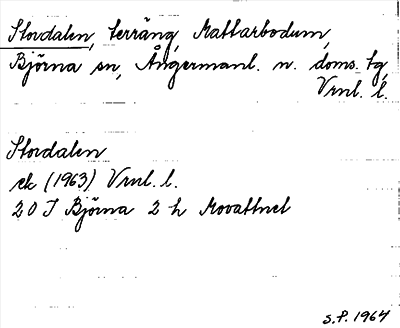 Stordalen, terräng, Mattarbodum,
Björna sn, Ångermanl. n. doms. tg,
Vrnl. l.
Stordalen
ek (1963) Vrnl. l.
20 J Björna 2 h Movattnet
S.P. 1964